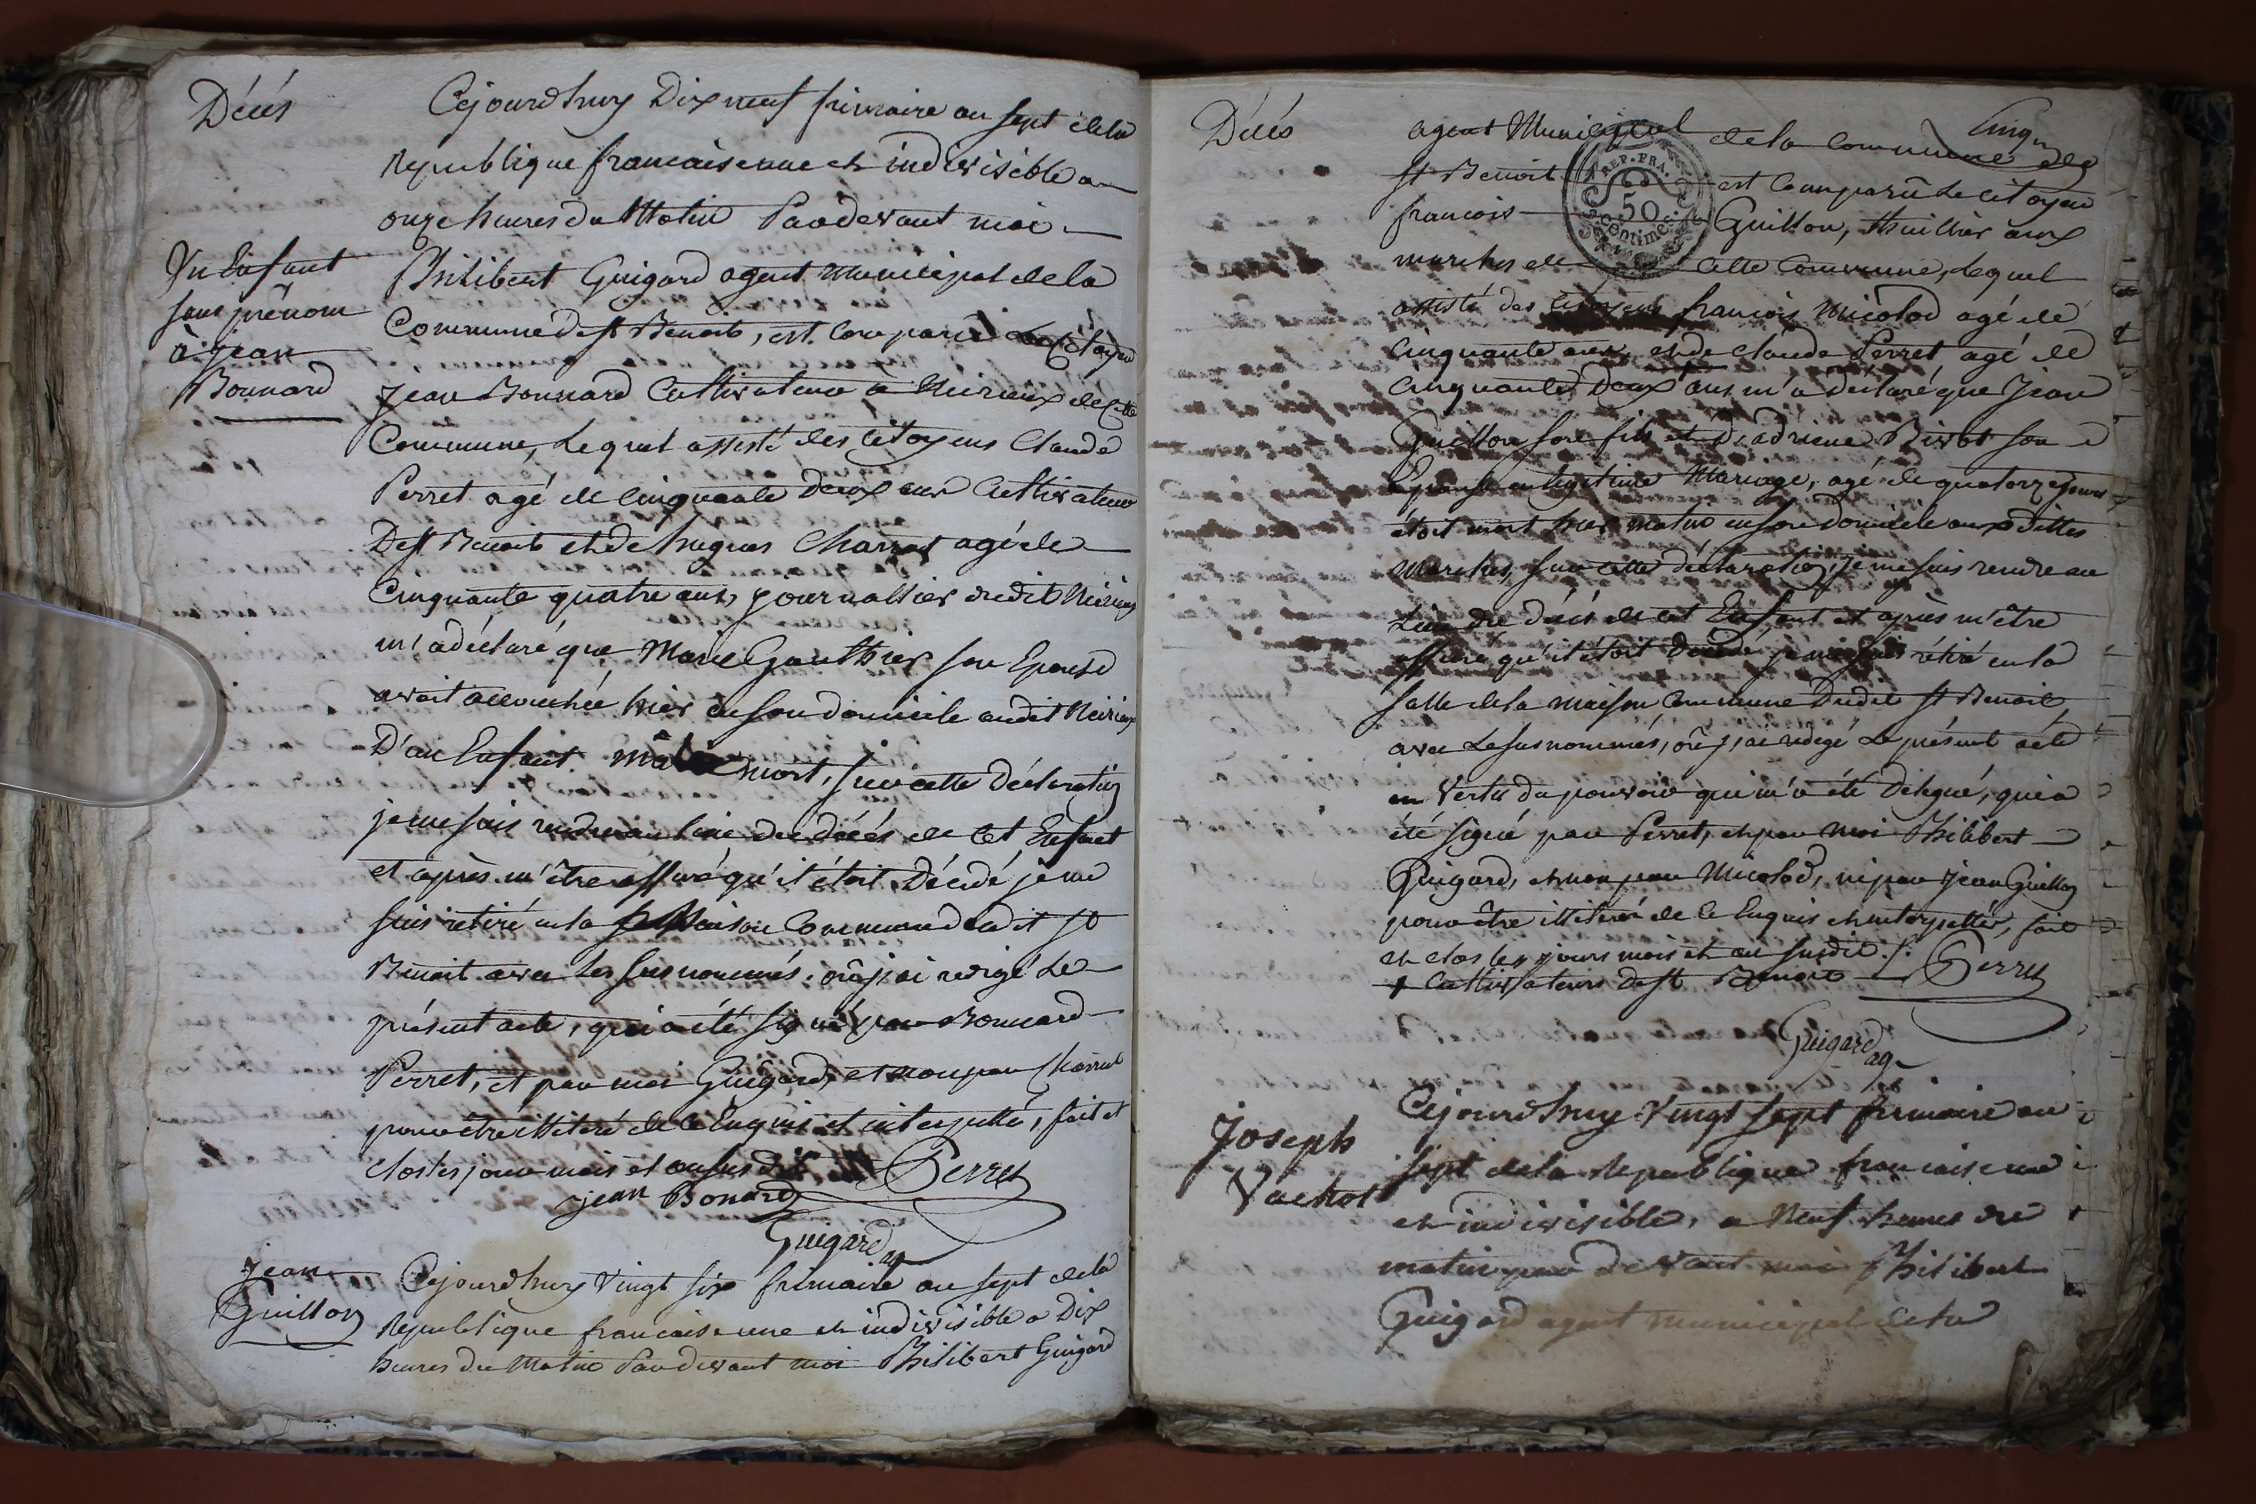 Décés
Cejourdhuy Dix neuf frimaire an sept dela
Republique francaise une et indivisible a
onze heures du Matin Pardevant moi
Un Enfant
sans prénom
à jean
Bonnard
Philibert Guigard agent municipal de la
Commune de st Benoit, est comparu le Citoyen
jean Bonnard Cultivateur a Neirieux de Cette
Commune, Lequel assisté des citoyens Claude
Perret agé de cinquante Deux ans Cultivateur
De st Benoit et de hugues agé de
Cinquante quatre ans, journallier dudit Neirieux
m'a déclaré que Marie Gauthier son Epouse
avoit accouchée hier en son domicile audit Neirieux
D'un Enfant mâle mort, sur cette déclaration
je me suis rendu au lieu du décés de cet Enfant
et après m'être assuré qu'il étoit Décédé je me
suis retiré en la Maison Commune dudit st
Benoit avec Les susnommés, où j'ai redigé Le
présent acte, qui a été signé par Bonnard
Perret, et par moi Guigard, et non par
pour être illitéré de ce Enquis et interpellé, fait et
clos les jour mois et an susdit Perret
jean Bonard
Guigard ag
jean
Guillon
Cejourdhuy Vingt six frimaire an sept dela
Republique francaise une et indivisible a Dix
heures du Matin Pardevant moi Philibert Guigard
Décés
Cinq
agent Municipal de la commune de
st Benoit est comparu Le citoyen
francois Guillon, huillier aux
marches de cette Commune, lequel
assisté des citoyens francois Micolod agé de
cinquante ans, et de claude Perret agé de
cinquante Deux ans m'a déclaré que Jean
Guillon son fils et D'adriene son
Epouse en legitime Mariage, agé de quatorze jours
étoit mort hier matin en son domicile aux dittes
Marches, sur cette déclaration, je me suis rendre au
Lieu du décés de cet Enfant et après m'être
assuré qu'il étoit Décédé je me suis rétiré en la
salle de la maison Commune Dudit st Benoit,
avec Le susnommés, où j'ai redigé Le présent acte
en Vertu du pouvoir qui m'a été délegué, qui a
été signé par Perret, et par moi Philibert
Guigard, et non par Micolod, ni par jean Guillon
pour être illitéré de ce Enquis et interpellés, fait
et clos les jours mois et an susdit ./. Perret
+ Cultivateurs de st Benoit
Guigard ag
Joseph
Vachot
Cejourdhuy Vingt sept frimaire an
sept dela Republique francaise une
et indivisible, a Neuf heures du
matin par devant moi Philibert
Guigard agent municipal de la
REP. FRA.
50
Centimes